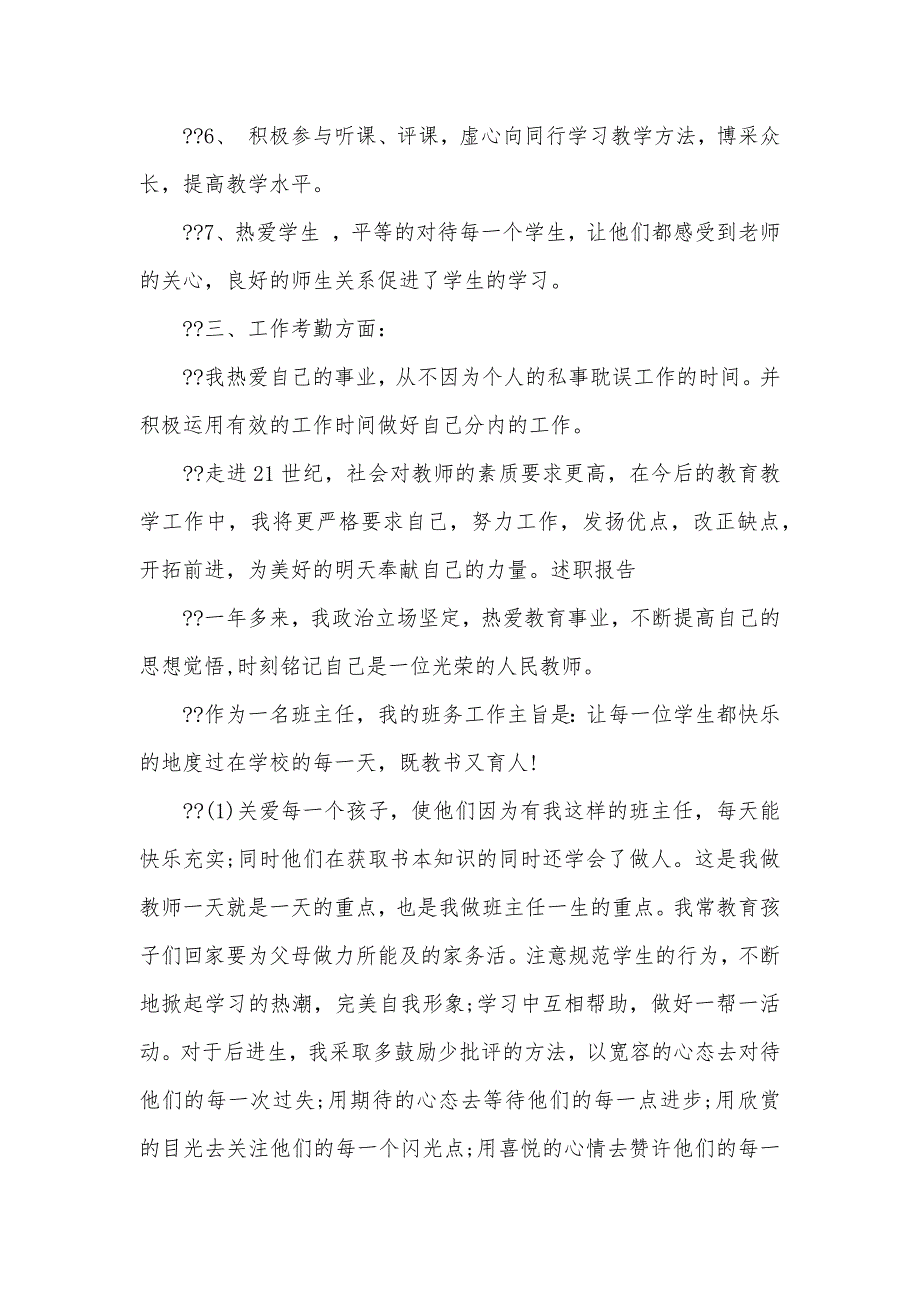 ??6、 积极参与听课、评课，虚心向同行学习教学方法，博采众
长，提高教学水平。
??7、热爱学生 ，平等的对待每一个学生，让他们都感受到老师
的关心，良好的师生关系促进了学生的学习。
??三、工作考勤方面：
??我热爱自己的事业，从不因为个人的私事耽误工作的时间。并
积极运用有效的工作时间做好自己分内的工作。
??走进21世纪，社会对教师的素质要求更高，在今后的教育教
学工作中，我将更严格要求自己，努力工作，发扬优点，改正缺点，
开拓前进，为美好的明天奉献自己的力量。述职报告
??一年多来，我政治立场坚定，热爱教育事业，不断提高自己的
思想觉悟,时刻铭记自己是一位光荣的人民教师。
??作为一名班主任，我的班务工作主旨是：让每一位学生都快乐
的地度过在学校的每一天，既教书又育人!
??(1)关爱每一个孩子，使他们因为有我这样的班主任，每天能
快乐充实;同时他们在获取书本知识的同时还学会了做人。这是我做
教师一天就是一天的重点，也是我做班主任一生的重点。我常教育孩
子们回家要为父母做力所能及的家务活。注意规范学生的行为，不断
地掀起学习的热潮，完美自我形象;学习中互相帮助，做好一帮一活
动。对于后进生，我采取多鼓励少批评的方法，以宽容的心态去对待
他们的每一次过失;用期待的心态去等待他们的每一点进步;用欣赏
的目光去关注他们的每一个闪光点;用喜悦的心情去赞许他们的每一